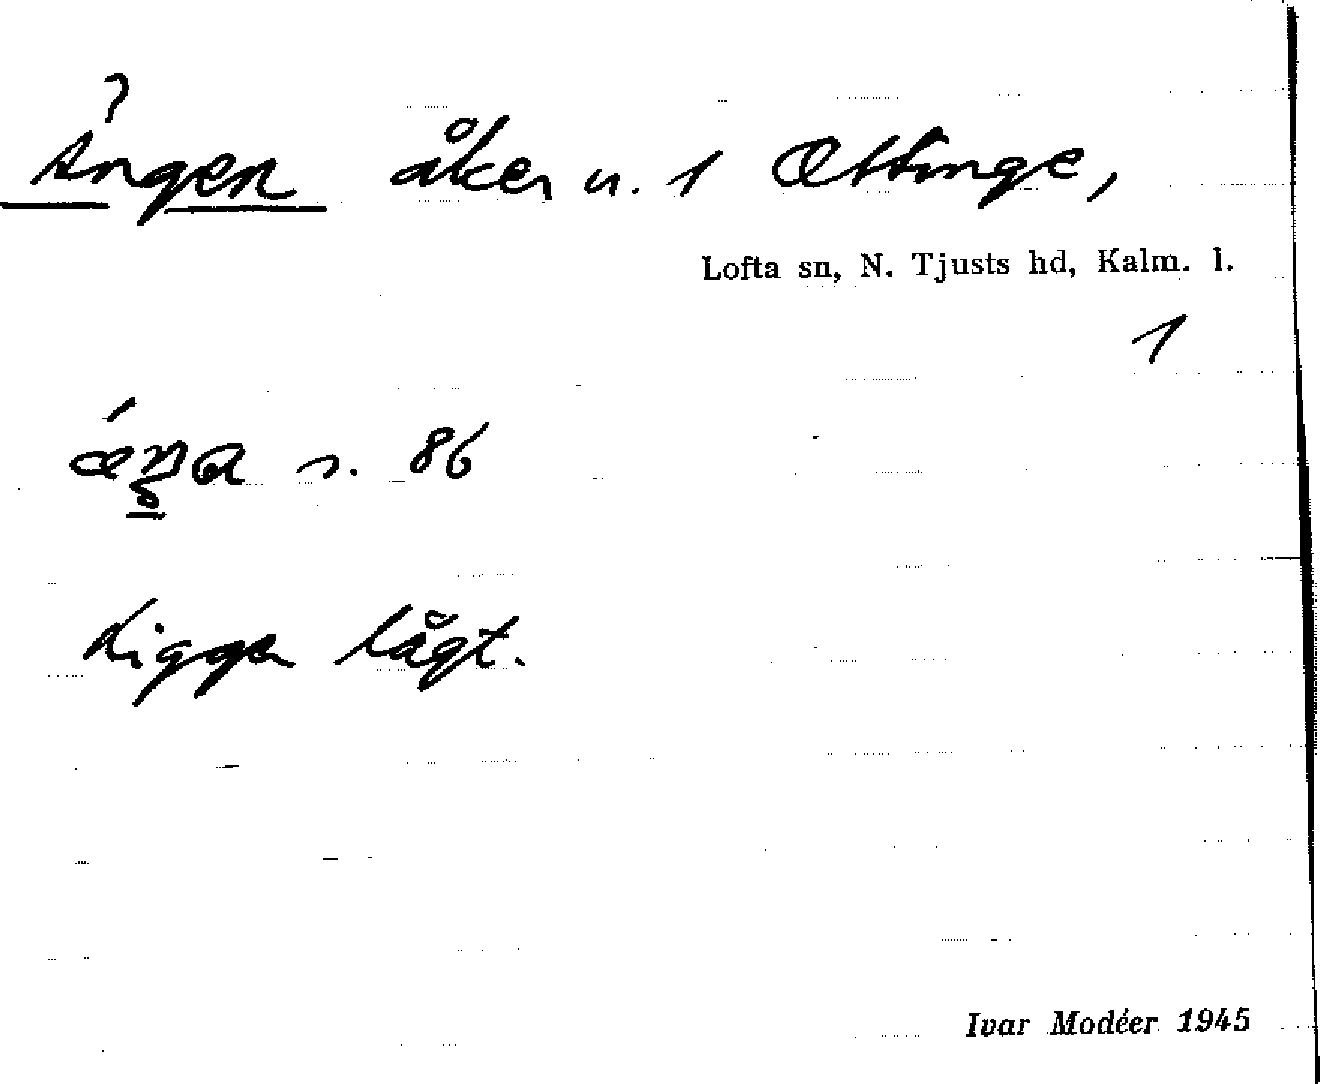 Ängen åker u. 1 Ottinge,
Lofta sn, N. Tjusts hd, Kalm. l.
1
s. 86
Ligger lågt.
Ivar Modéer 1945